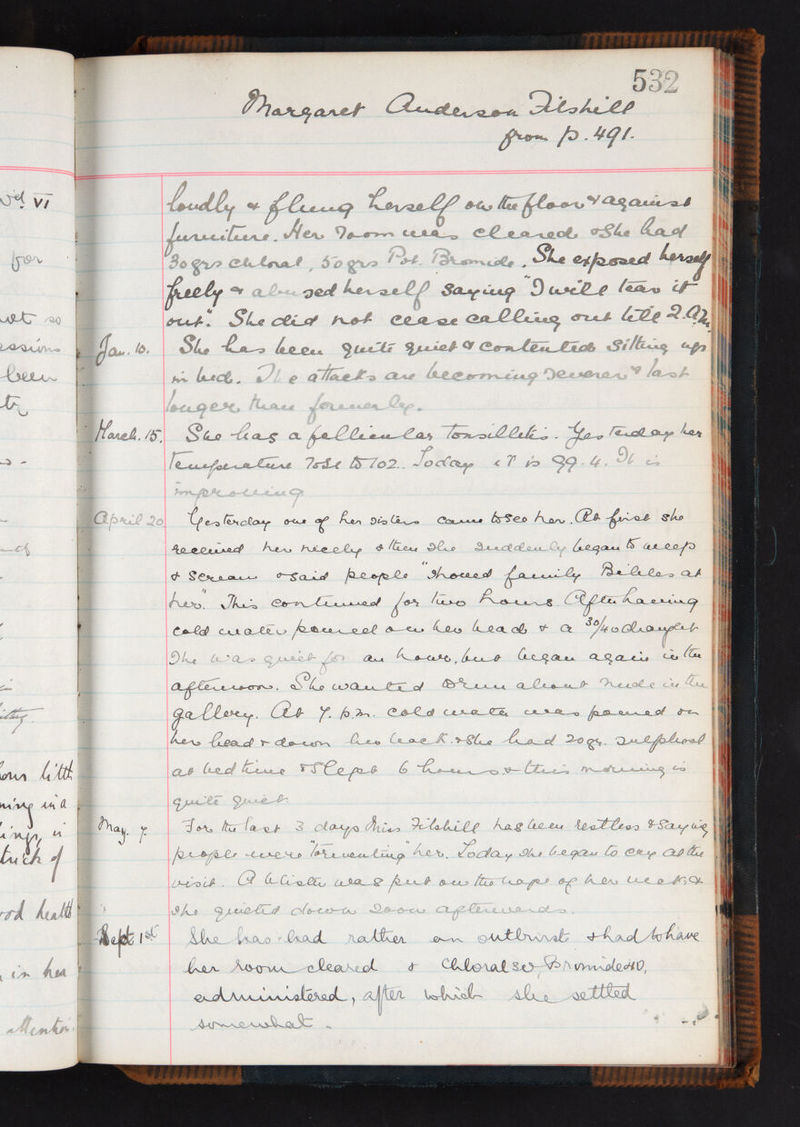 532
Margaret Anderson Filshill
from p. 491.
loudly & flung herself on the floor & against
furniture. Her room was cleared & She had
30 grs chloral, 50 grs Pot. Bromide. She exposed herself
freely & abused herself saying "I will tear it
out". She did not cease calling out till 2. a.m.
Jan. 10. She has been quite quiet & contented sitting up
in bed. The attacks are becoming severer & last
longer than formerly.
March. 15. She has a follicular tonsillitis. Yesterday her
temperature rose to 102. Today it is 99.4. It is
improving
April 20 Yesterday one of her sisters came to see her. At first she
received her nicely & then she suddenly began to weep
& scream & said people "shoved family Bibles at
her". This continued for two hours. After having
cold water poured over her head & a 30/40 draught
she was quiet for an hour, but began again in the
afternoon. She wanted to run about nude in the
gallery. At 7. p.m. cold water was poured on
her head & down her back. & She had 20 gr. sulphonal
at bed time & slept 6 hours & this morning is
quite quiet.
May. 7. For the last 3 days Miss Filshill has been restless & saying
people were "tormenting" her. Today she began to cry at the
visit. A blister was put on the nape of her neck &
she quieted down soon afterwards.
Sept 1st She has had rather an outburst & had to have
her room cleared & Chloral 30, Bromide 40,
administered, after which she settled
somewhat.
vid VI
for
not so
been
our little
ning in a
ings, in
truck of
od health
in her
attention